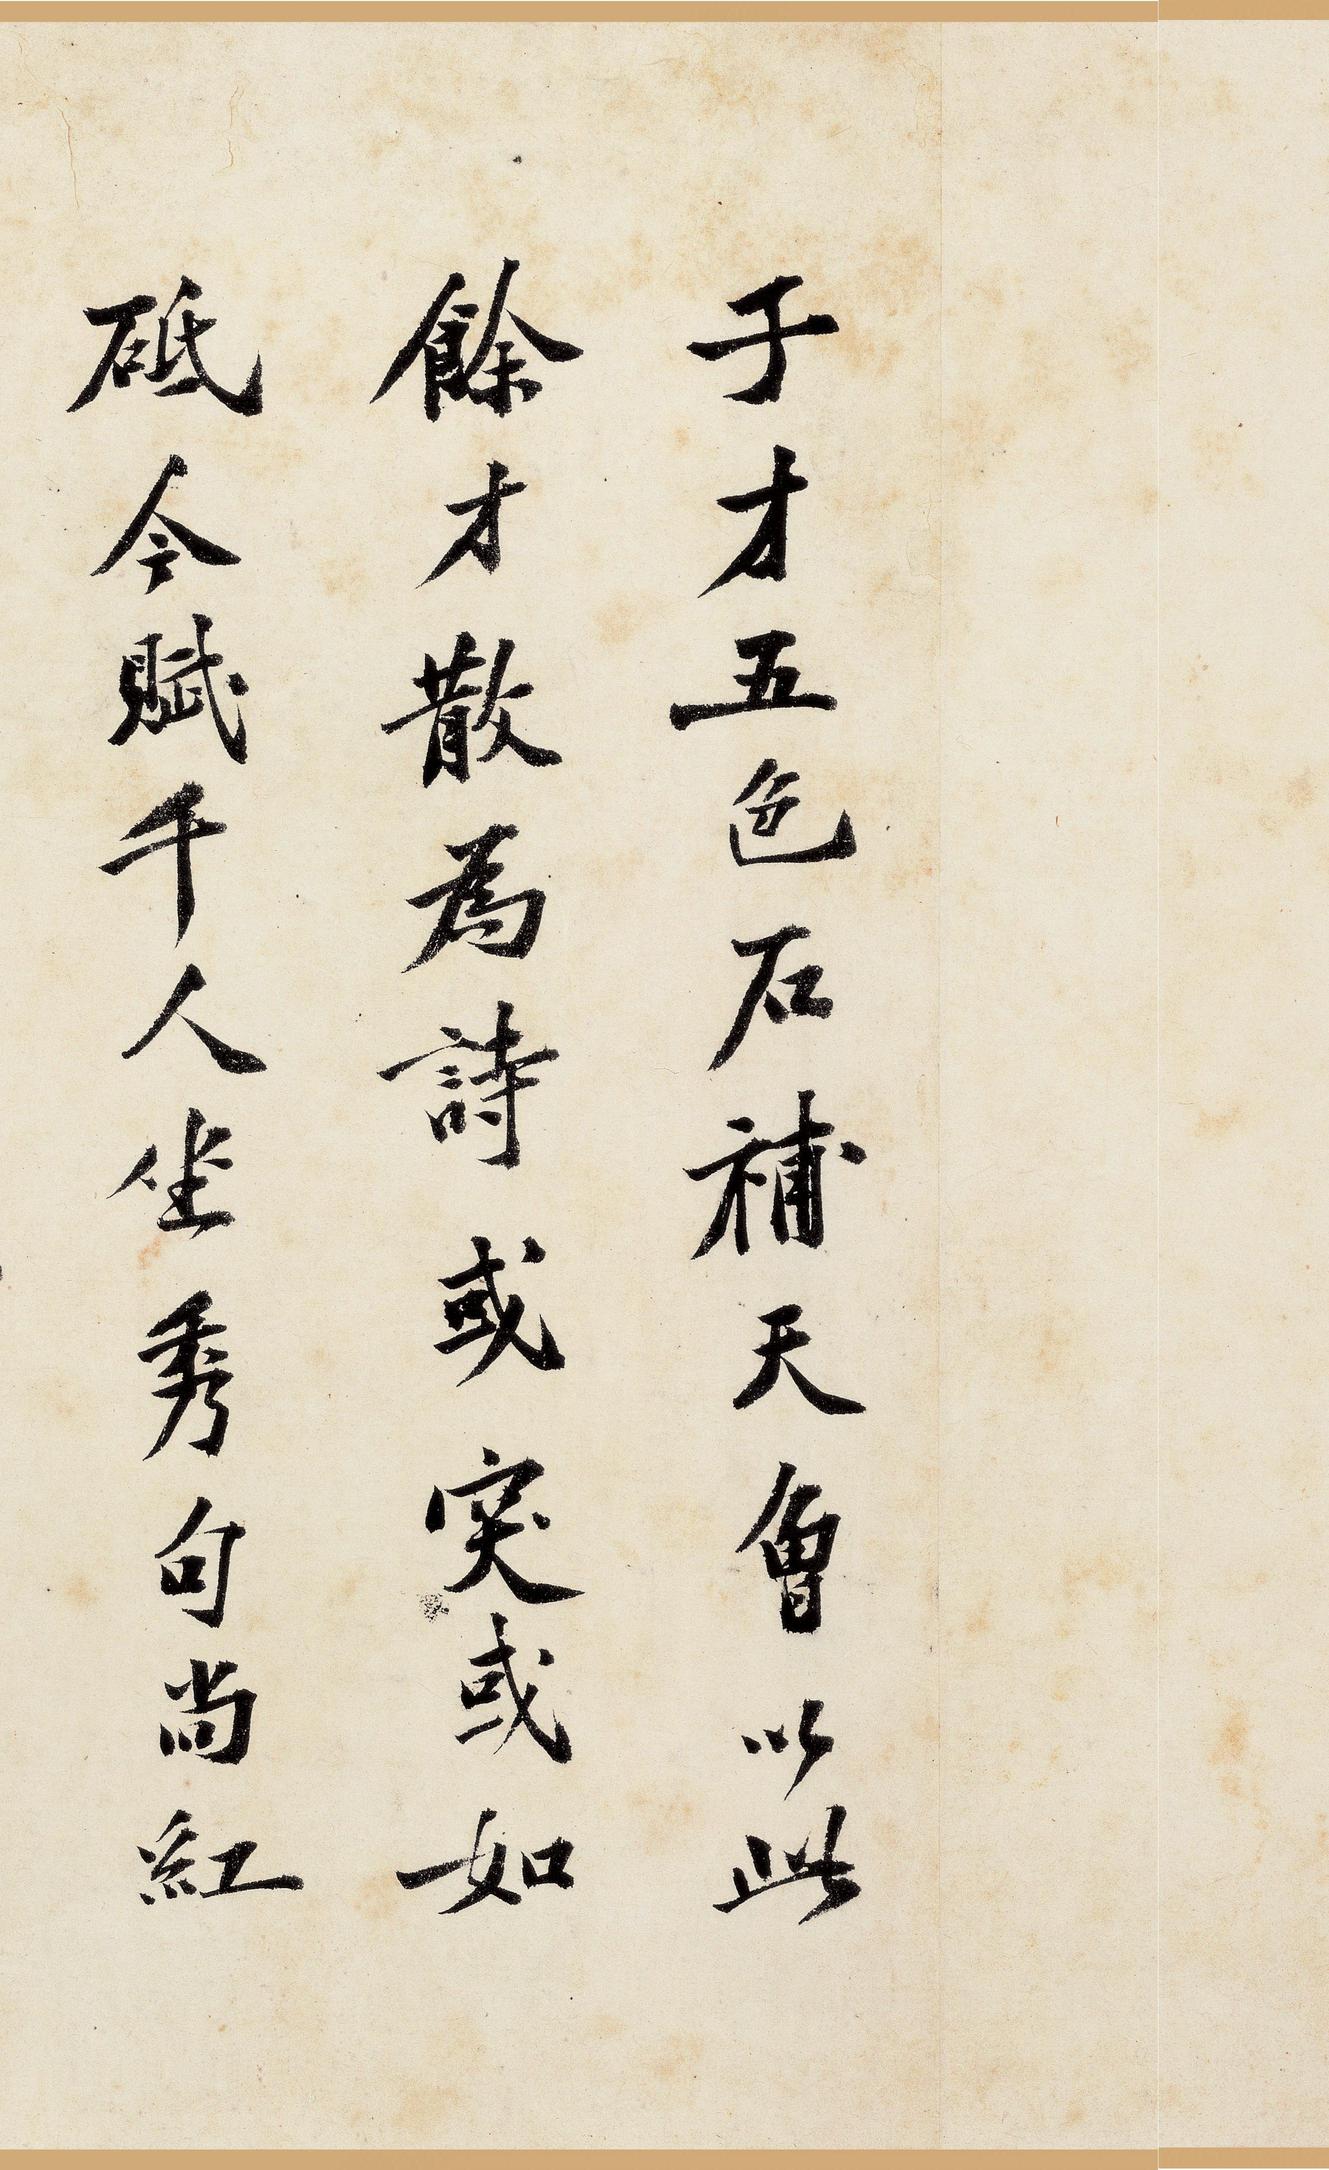 于才五色石補天會以此
餘才散為詩或突或如
砥今賦千人坐秀句尚紅